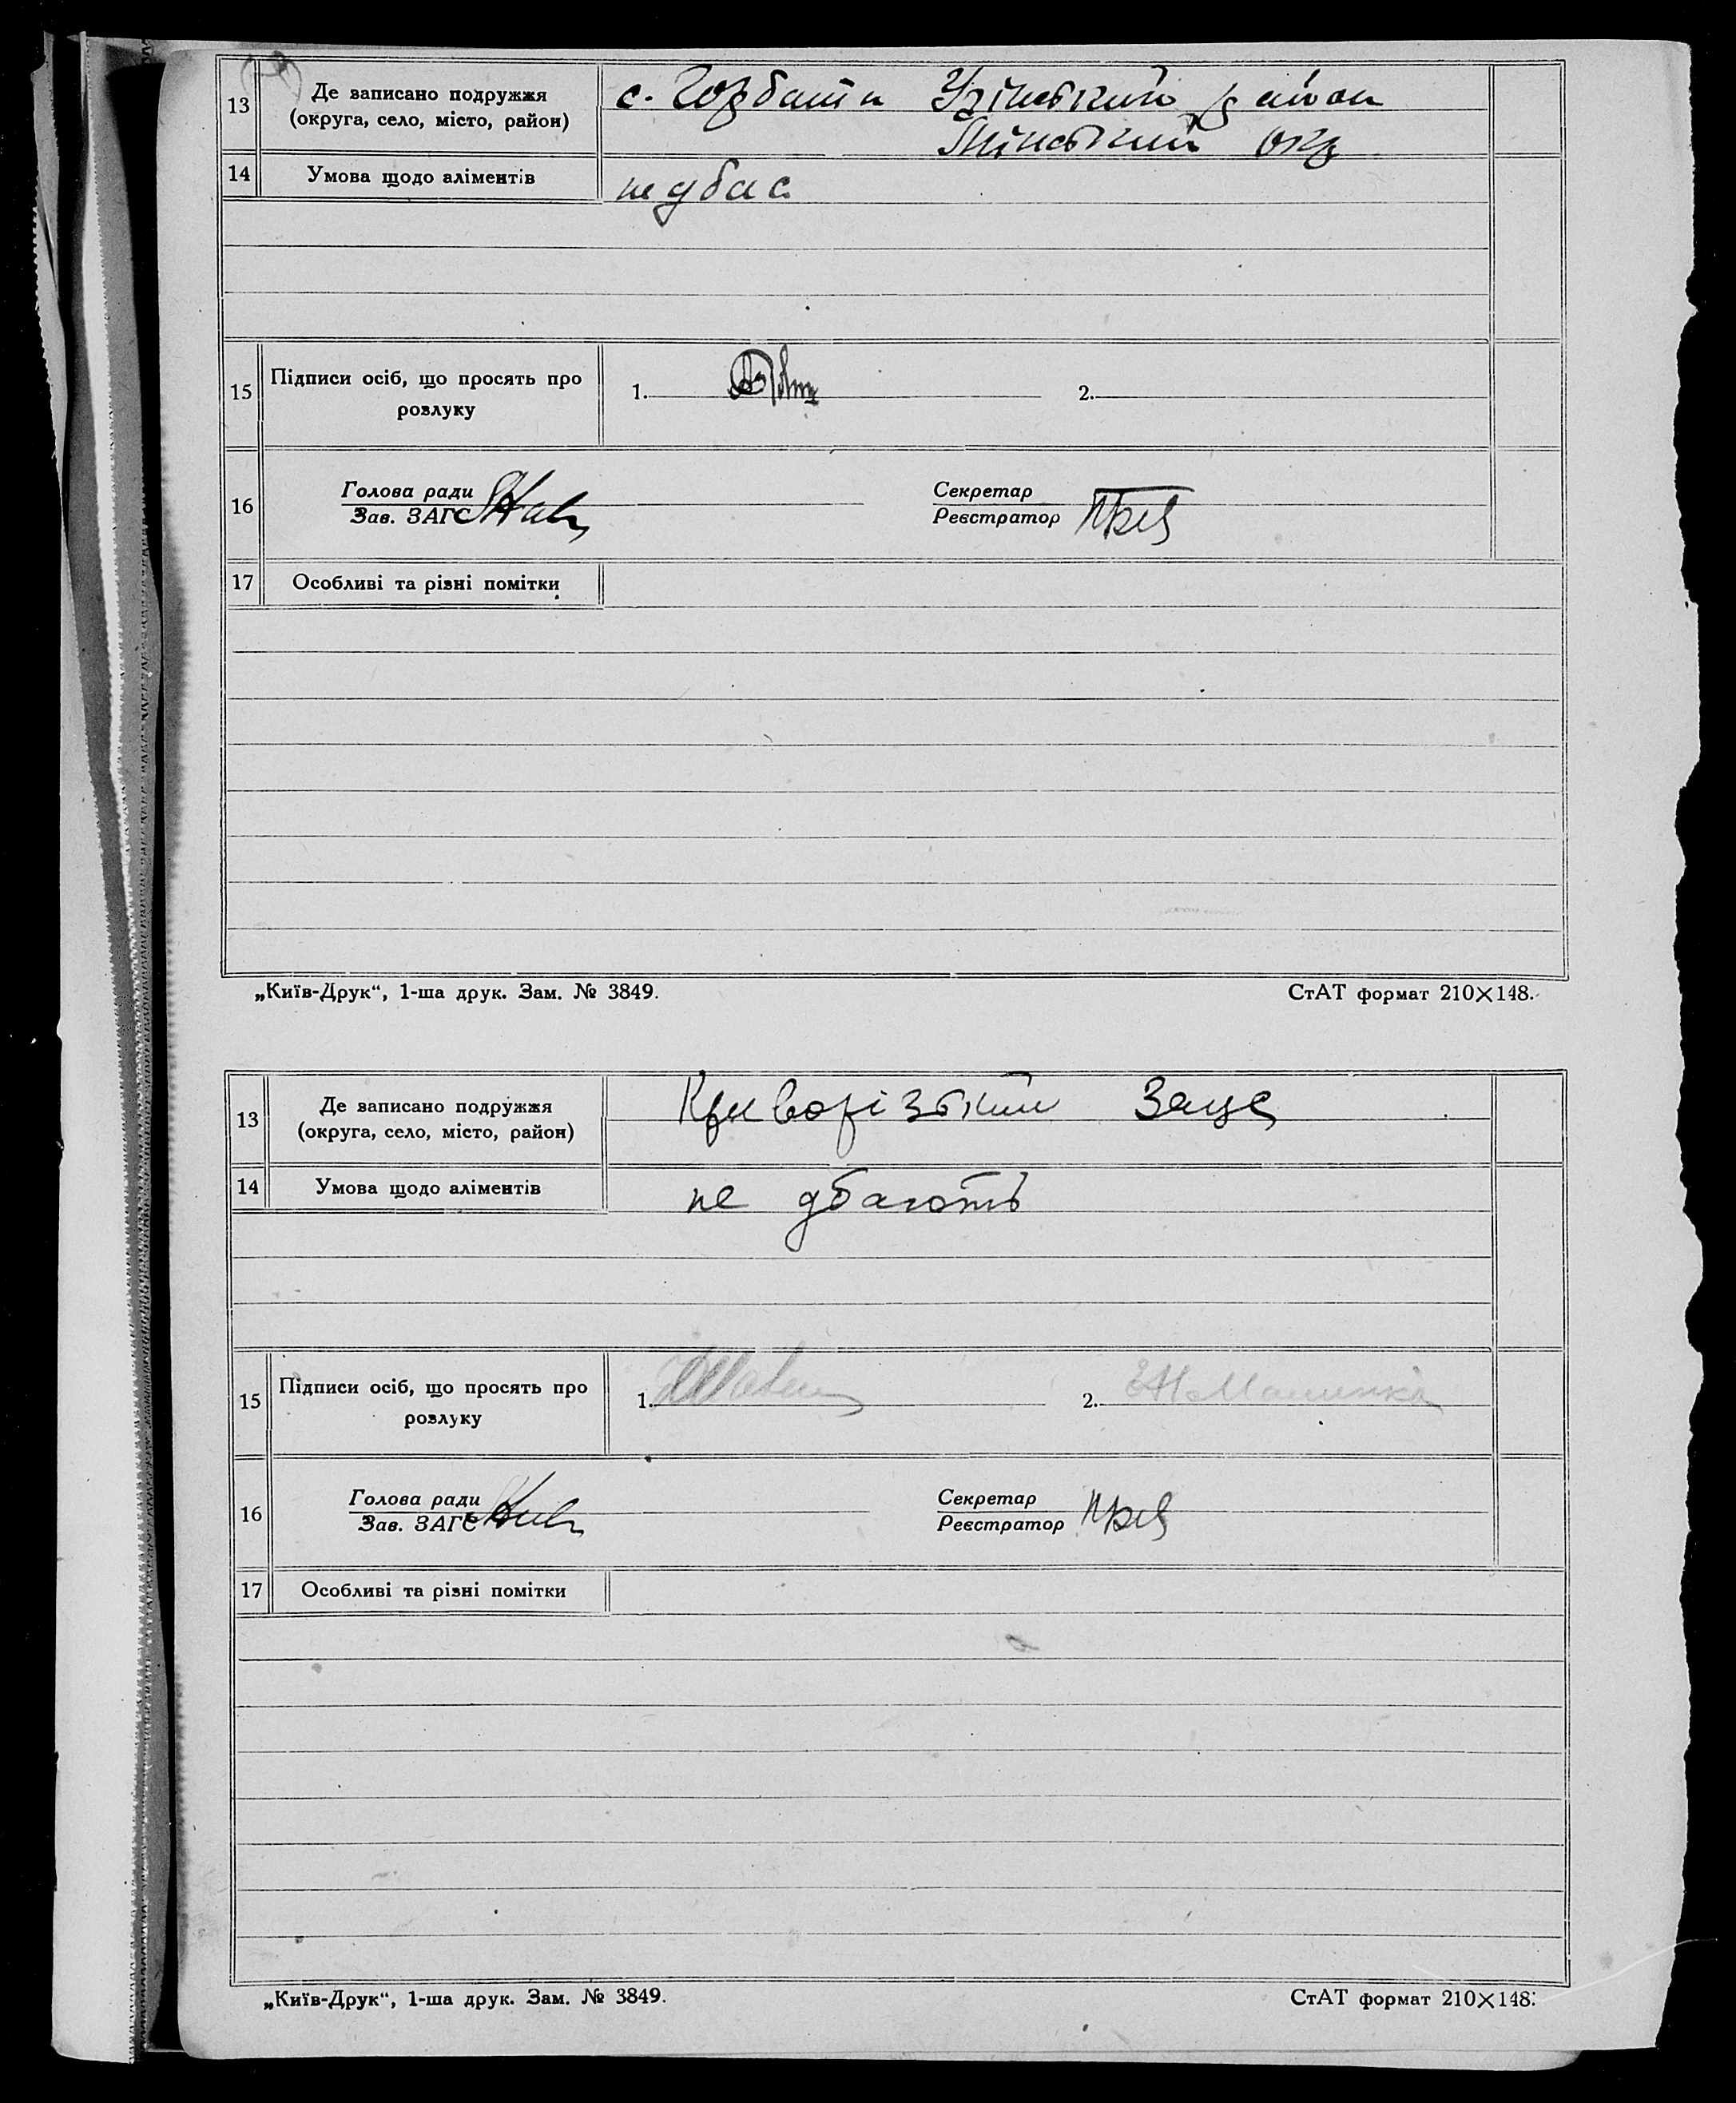 13 Де записано подружжя
(округа, село, місто, район)
с. Горбати Узінський район
Мінський окр
14 Умова щодо аліментів
не дбає
15 Підписи осіб, що просять про
розлуку
1. 2.
16 Голова ради
Зав. ЗАГС
Секретар
Реєстратор
17 Особливі та різні помітки
„Київ-Друк“, 1-ша друк. Зам. № 3849. СтАТ формат 210×148.
13 Де записано подружжя
(округа, село, місто, район)
Криворізький Загс
14 Умова щодо аліментів
не дбають
15 Підписи осіб, що просять про
розлуку
1. 2.
16 Голова ради
Зав. ЗАГС
Секретар
Реєстратор
17 Особливі та різні помітки
„Київ-Друк“, 1-ша друк. Зам. № 3849. СтАТ формат 210×148.